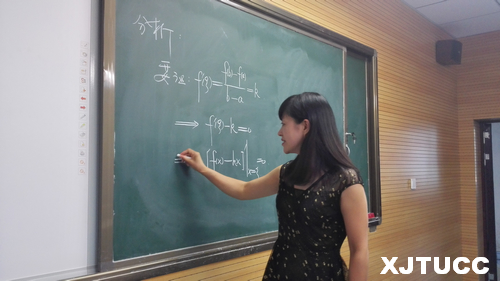 分析：
要证: f'(ξ) = f(b)-f(a) / b-a = k
⟹ f'(ξ)-k=0
[f(x)-kx]'|x=ξ =0
XJTUCC